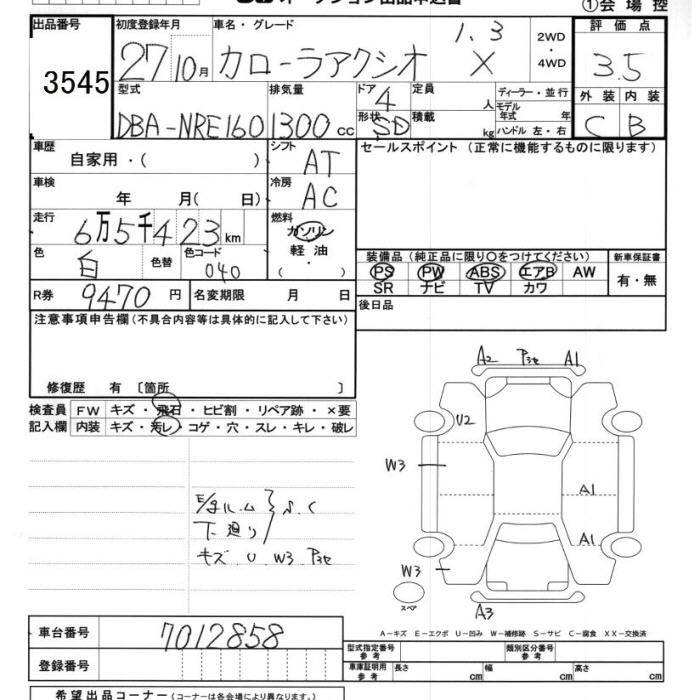 オークション出品申込書
①会場控
出品番号 初度登録年月 車名・グレード 評価点
3545 27 10月 カローラアクシオ 1.3 X 2WD ・ 4WD 3.5
型式 排気量 ドア 4 定員 人 ディーラー・並行 外装 内装
モデル年式 年
DBA-NRE160 1300 cc 形状 SD 積載 kg ハンドル 左・右 C B
車歴 自家用・( ) シフト AT セールスポイント (正常に機能するものに限ります)
車検 年 月( 日) 冷房 AC
走行 6万5千423 km 燃料 ガソリン
軽油
・
( )
色 白 色替 色コード 040
装備品 (純正品に限り○をつけてください) 新車保証書
PS PW ABS エアB AW 有・無
SR ナビ TV カワ
R券 9470 円 名変期限 月 日 後日品
注意事項申告欄 (不具合内容等は具体的に記入して下さい)
修復歴 有 [箇所 ]
検査員 FW キズ・飛石・ヒビ割・リペア跡・×要
記入欄 内装 キズ・汚レ・コゲ・穴・スレ・キレ・破レ
A2 P3セ A1
U2
W3
A1
A1
W3
スペア
A3
下廻り
キズ U W3 P3セ
A-キズ E-エクボ U-凹み W-補修跡 S-サビ C-腐食 XX-交換済
車台番号 7012858
型式指定番号 参考 類別区分番号 参考
登録番号 車庫証明用 参考 長さ cm 幅 cm 高さ cm
希望出品コーナー (コーナーは各会場により異なります。)